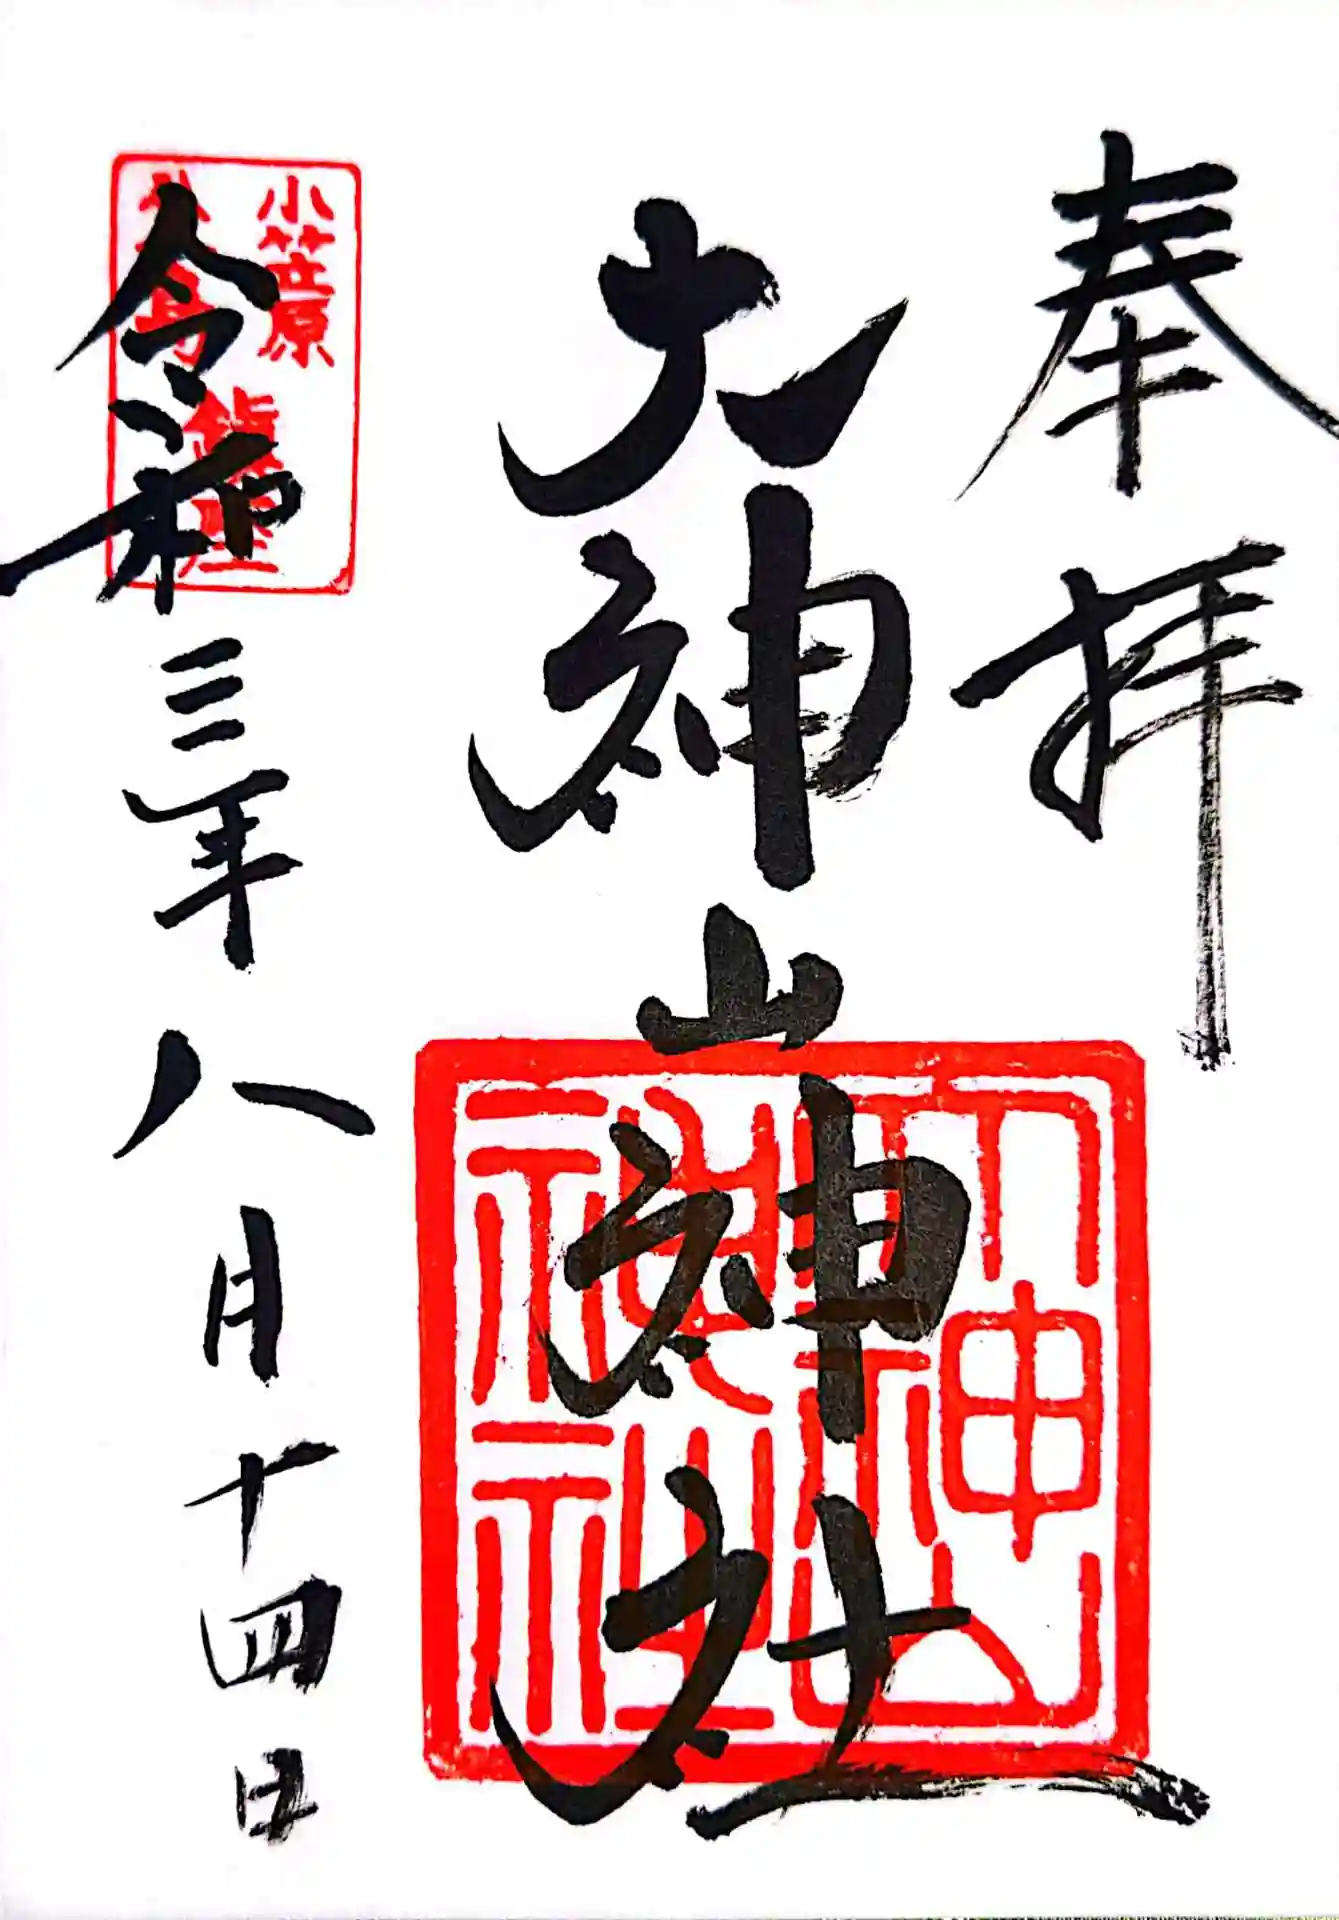 奉拝
大神山神社
大神山神社
小笠原
父島 鎮座
令和三年八月十四日